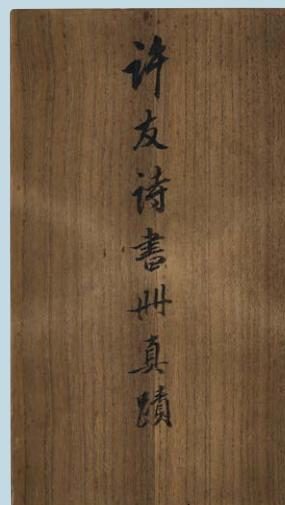 许友诗書册真蹟